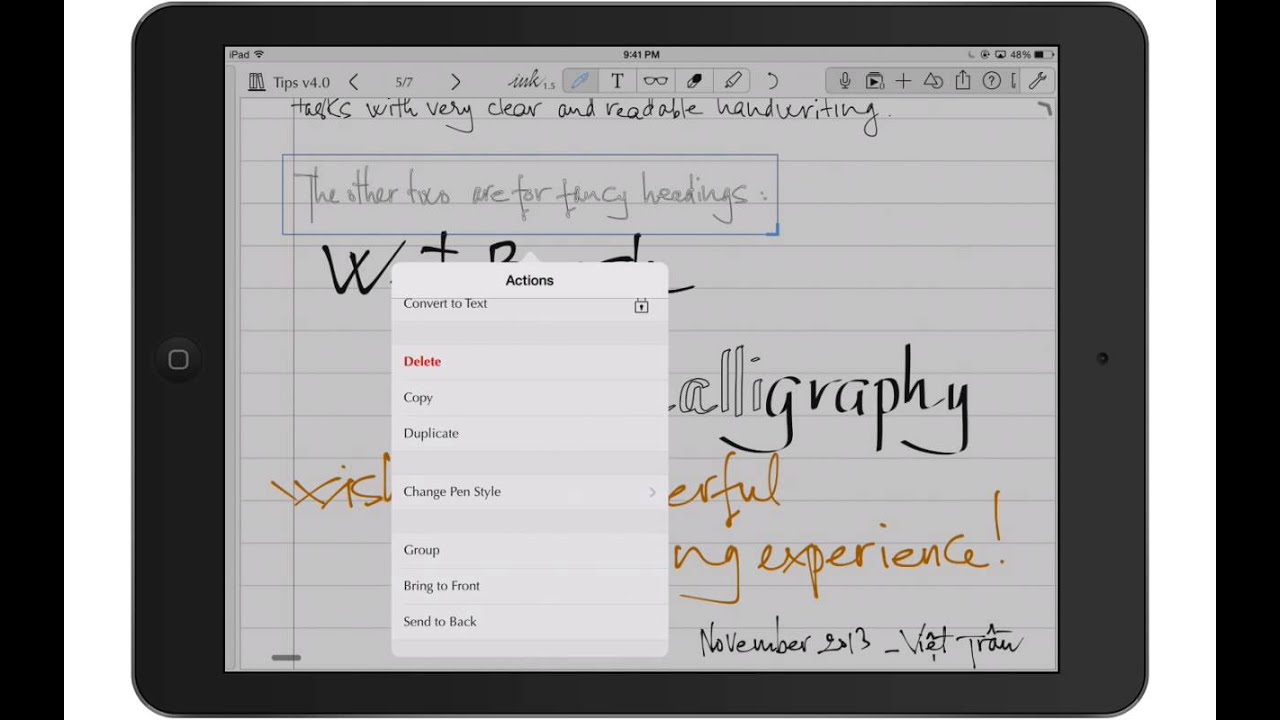 iPad 9:41 PM 48%
Tips v4.0 5/7 ink 1.5 T ?
tasks with very clear and readable handwriting.
The other two are for fancy headings :
Actions
Convert to Text
Delete
Copy
alligraphy
Duplicate
Change Pen Style
erful
Group
ng experience!
Bring to Front
Send to Back
November 2013 - Việt Trần